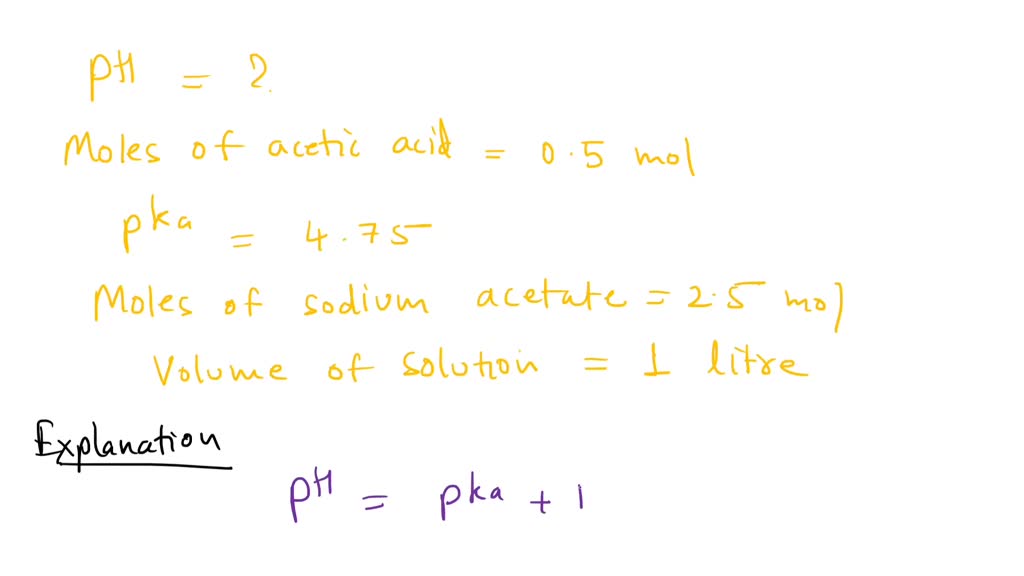 pH = ?
Moles of acetic acid = 0.5 mol
pka = 4.75
Moles of sodium acetate = 2.5 mol
Volume of solution = 1 litre
Explanation
pH = pka + 1